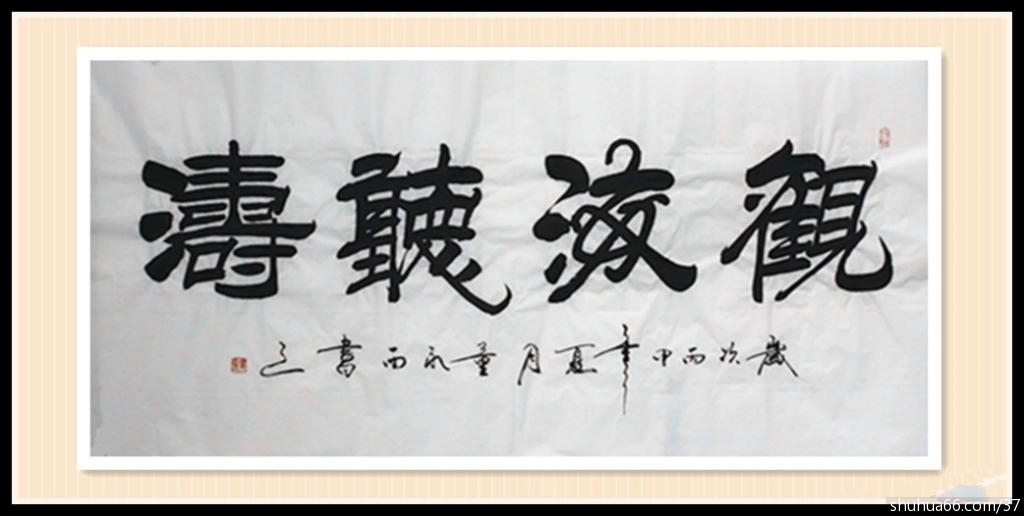 觀海聽濤
歲次丙申年夏月董永西書之
shuhua66.com/37